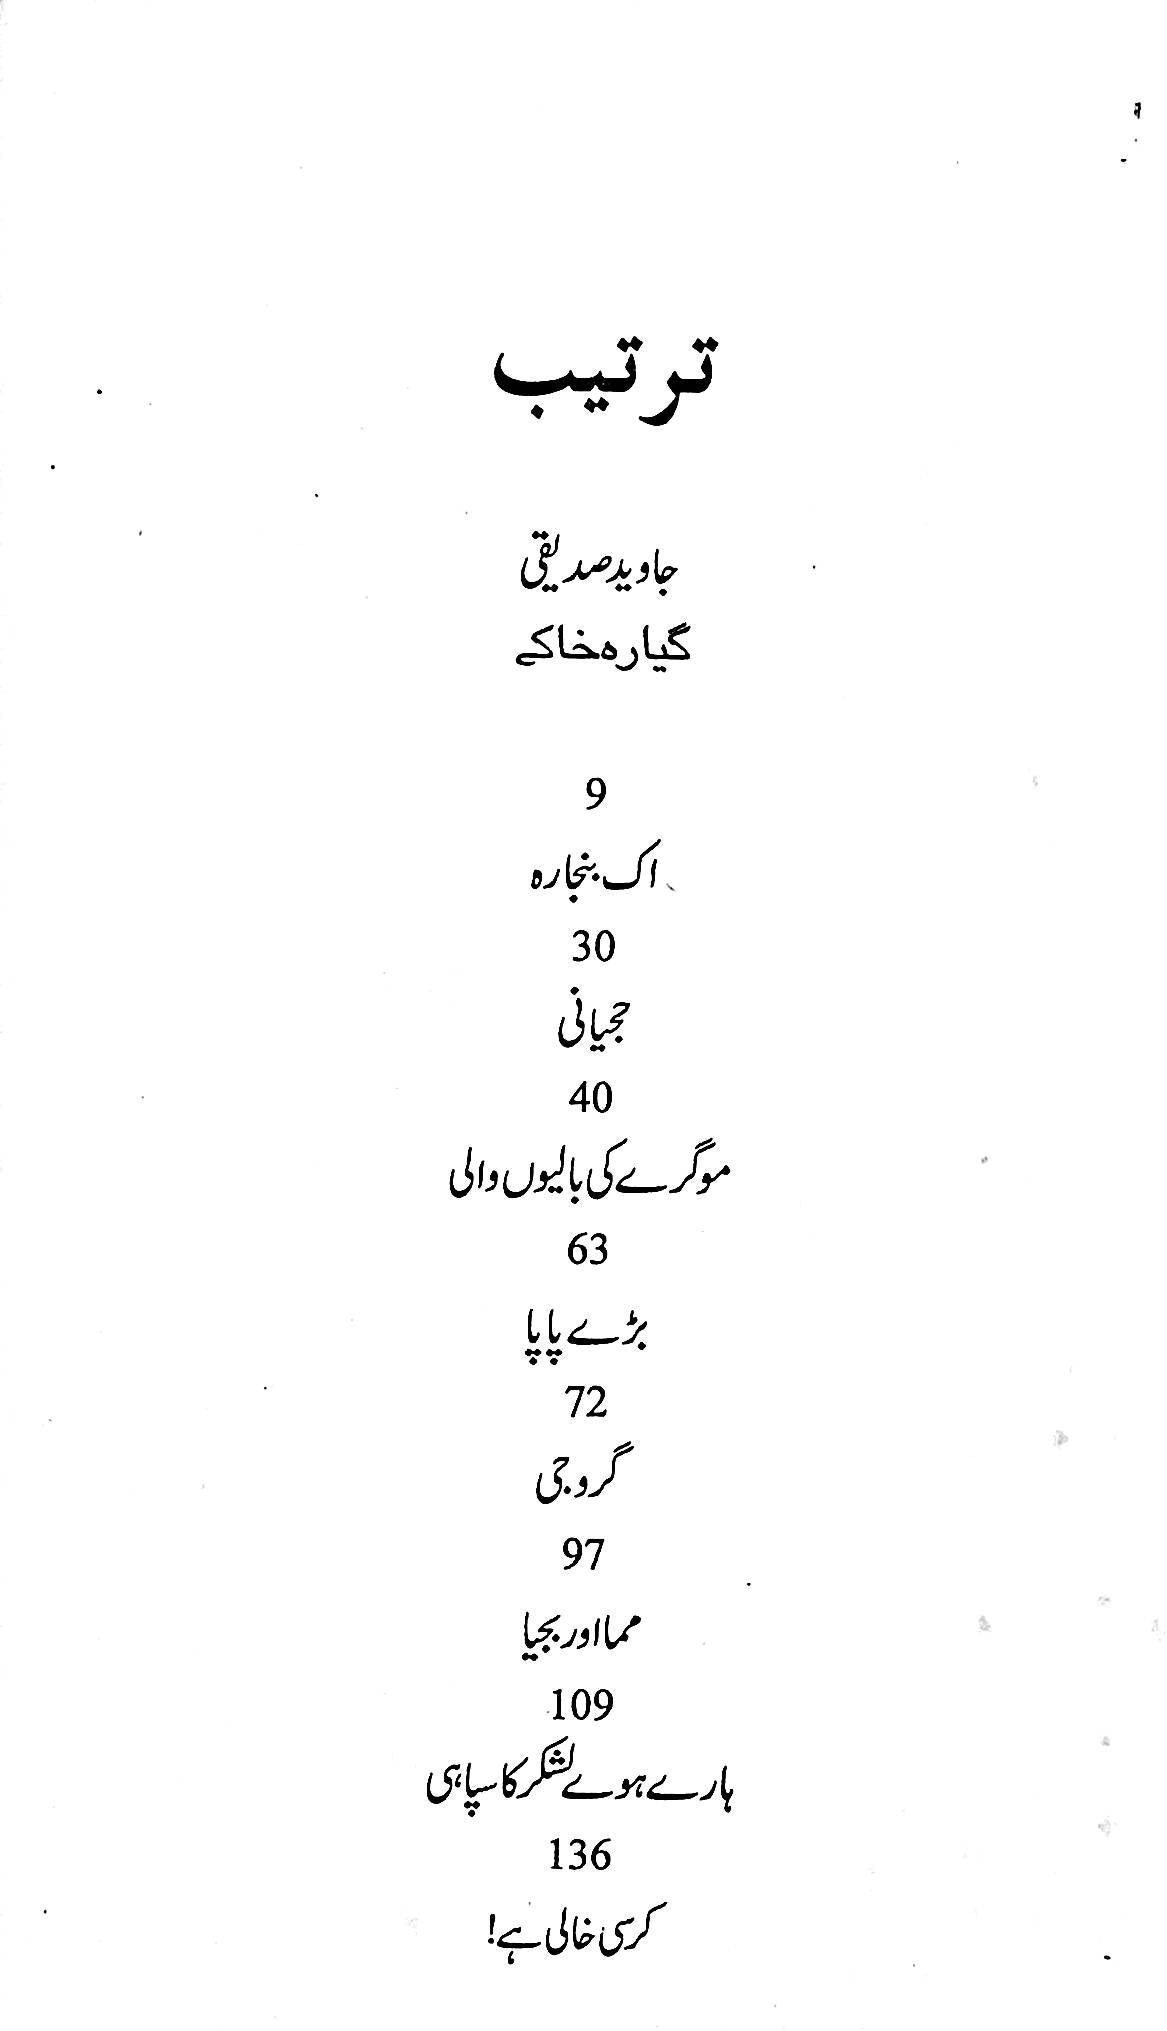 ترتیب
جاوید صدیقی
گیارہ خاکے
9
اک بنجارہ
30
حجیانی
40
موگرے کی بالیوں والی
63
بڑے پاپا
72
گرو جی
97
مما اور بجیا
109
ہارے ہوے لشکر کا سپاہی
136
کرسی خالی ہے!